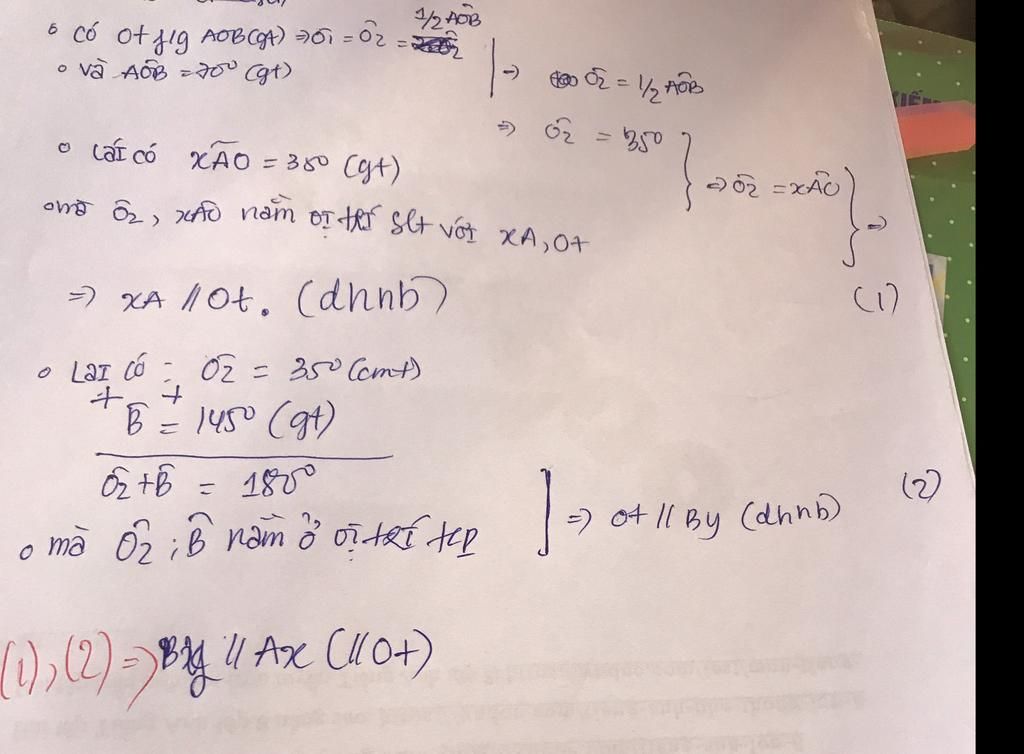 có Ot f/g AOB(gt) ⇒ Ô1 = Ô2 = 1/2 AÔB
và AÔB = 70° (gt)
⇒ Ô2 = 1/2 AÔB
⇒ Ô2 = 35°
Lại có xÂO = 35° (gt)
⇒ Ô2 = xÂO
mà Ô2, xÂO nằm ở vị trí slt với xA, Ot
⇒
⇒ xA // Ot. (dhnb)
(1)
Lại có : Ô2 = 35° (cmt)
+ +
B̂ = 145° (gt)
Ô2 + B̂ = 180°
mà Ô2 ; B̂ nằm ở vị trí tcp
⇒ Ot // By (dhnb)
(2)
(1), (2) ⇒ By // Ax (// Ot)